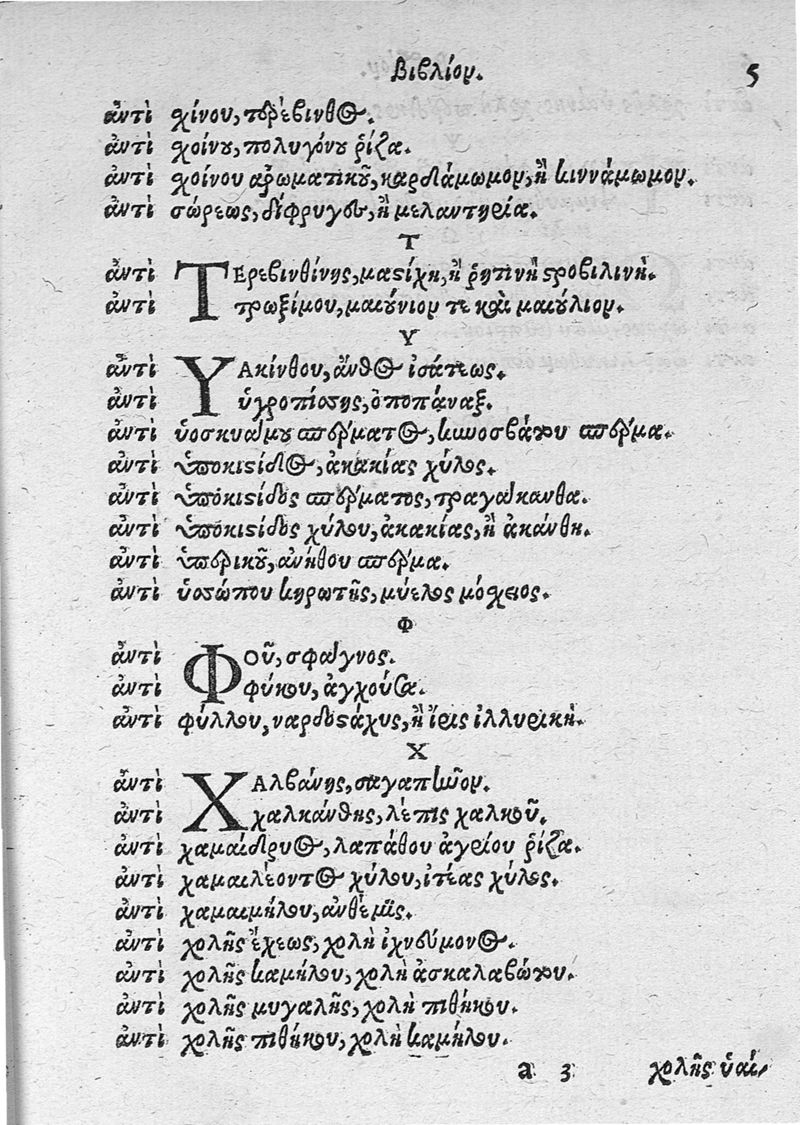 βιβλίον. 5
ἀντὶ σχίνου, τερέβινθος.
ἀντὶ σχοίνου, πολυγόνου ῥίζα.
ἀντὶ σχοίνου ἀρωματικοῦ, καρδάμωμον, ἢ κιννάμωμον.
ἀντὶ σώρεως, δίφρυγες, ἢ μελαντηρία.
Τ
ἀντὶ ΤΕρεβινθίνης, μαστίχη, ἢ ῥητινὴ στροβιλινὴ.
ἀντὶ τρωξίμου, μακούνιον τε καὶ μακούλιον.
Υ
ἀντὶ ΥΑκίνθου, ἄνθος ἰσάτεως.
ἀντὶ ὑγροπίσσης, ὀποπάναξ.
ἀντὶ ὑοσκυάμου σπέρματος, κυνοσβάτου σπέρμα.
ἀντὶ ὑποκιστίδος, ἀκακίας χύλος.
ἀντὶ ὑποκιστίδος σπέρματος, τραγάκανθα.
ἀντὶ ὑποκιστίδος χύλου, ἀκακίας, ἢ ἀκάνθη.
ἀντὶ ὑπερικοῦ, ἀνήθου σπέρμα.
ἀντὶ ὑσσώπου κηρωτῆς, μύελος μόσχειος.
Φ
ἀντὶ ΦΟῦ, σφάγνος.
ἀντὶ φύκου, ἀγχούσα.
ἀντὶ φύλλου, ναρδοστάχυς, ἢ ἴρις ἰλλυρικὴ.
Χ
ἀντὶ ΧΑλβάνης, σαγαπῆνον.
ἀντὶ χαλκάνθης, λέπις χαλκοῦ.
ἀντὶ χαμαίδρυος, λαπάθου ἀγρίου ῥίζα.
ἀντὶ χαμαιλέοντος χύλου, ἰτέας χύλος.
ἀντὶ χαμαιμήλου, ἀνθέμις.
ἀντὶ χολῆς ἔχεως, χολὴ ἰχνεύμονος.
ἀντὶ χολῆς καμήλου, χολὴ ἀσκαλαβώτου.
ἀντὶ χολῆς μυγαλῆς, χολὴ πιθήκου.
ἀντὶ χολῆς πιθήκου, χολὴ καμήλου.
a 3 χολῆς ὑαί-